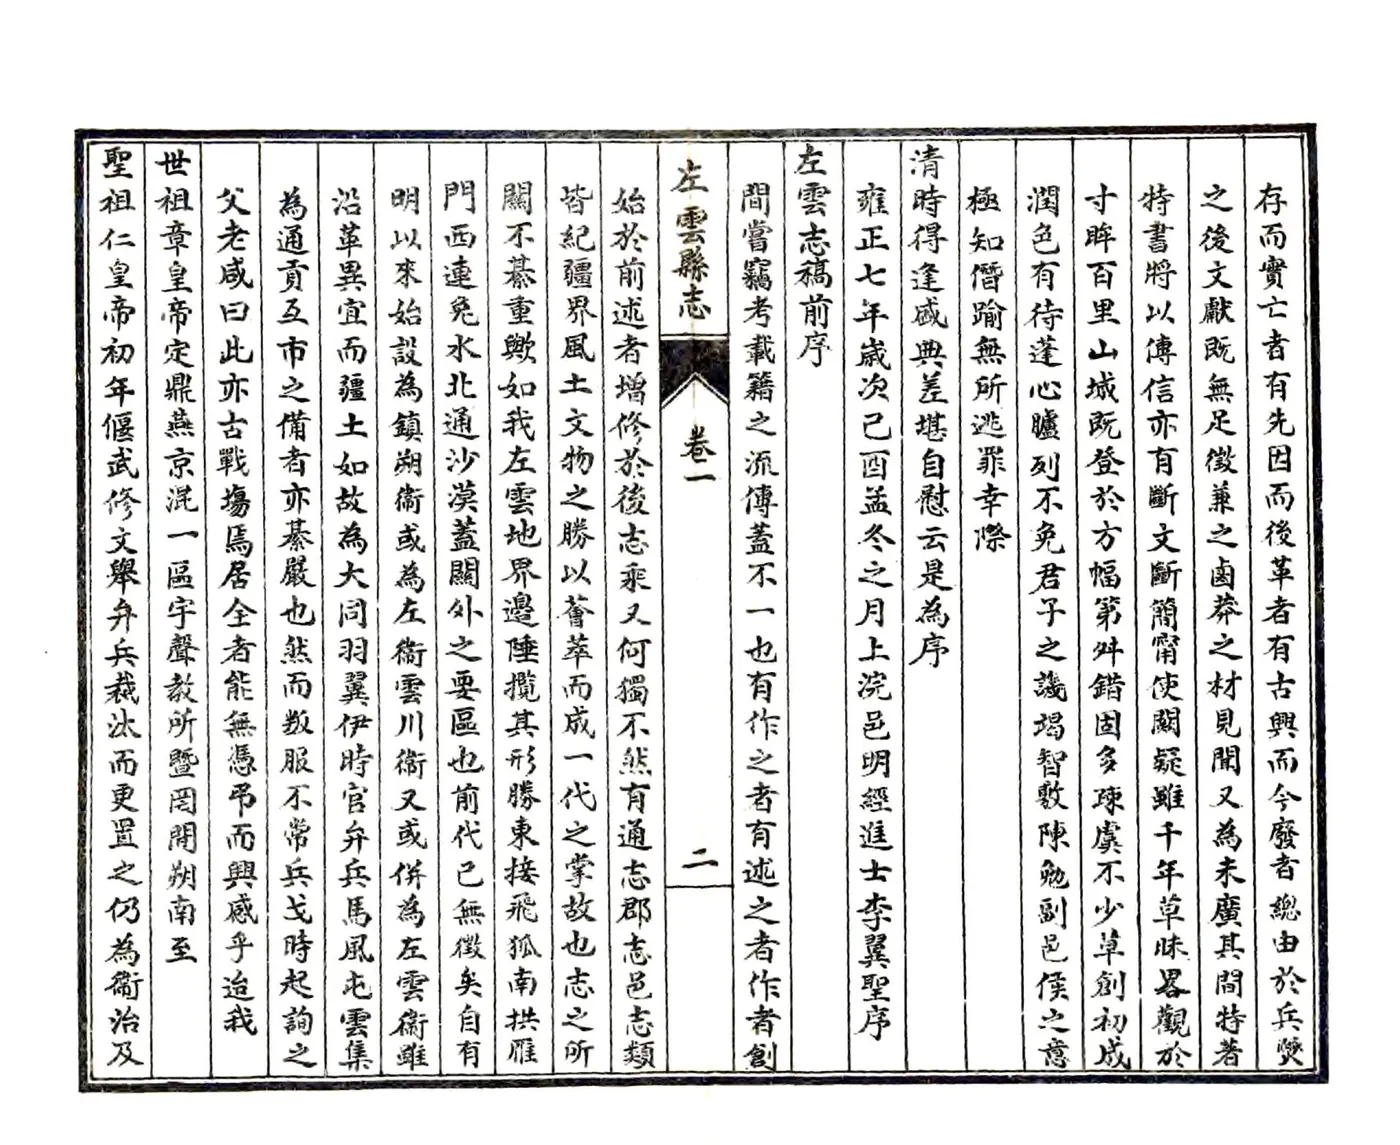 存而實亡者有先因而後革者有古興而今廢者總由於兵燹
之後文獻既無足徵兼之鹵莽之材見聞又為未廣其間特著
特書將以傳信亦有斷文斷簡甯使闕疑雖千年草昧畧觀於
寸眸百里山城既登於方幅第舛錯固多疎虞不少草創初成
潤色有待蓬心臚列不免君子之譏竭智敷陳勉副邑侯之意
極知僭踰無所逃罪幸際
清時得逢盛典差堪自慰云是為序
雍正七年歲次己酉孟冬之月上浣邑明經進士李翼聖序
左雲志稿前序
間嘗竊考載籍之流傳蓋不一也有作之者有述之者作者創
左雲縣志
卷一
二
始於前述者增修於後志乘又何獨不然有通志郡志邑志類
皆紀疆界風土文物之勝以薈萃而成一代之掌故也志之所
關不綦重歟如我左雲地界邊陲攬其形勝東接飛狐南拱雁
門西連兔水北通沙漠蓋關外之要區也前代已無徵矣自有
明以來始設為鎮朔衞或為左衞雲川衞又或併為左雲衞雖
沿革異宜而疆土如故為大同羽翼伊時官弁兵馬風屯雲集
為通貢互市之備者亦綦嚴也然而叛服不常兵戈時起詢之
父老咸曰此亦古戰塲焉居全者能無憑弔而興感乎迨我
世祖章皇帝定鼎燕京混一區宇聲教所暨罔間朔南至
聖祖仁皇帝初年偃武修文舉弁兵裁汰而更置之仍為衞治及